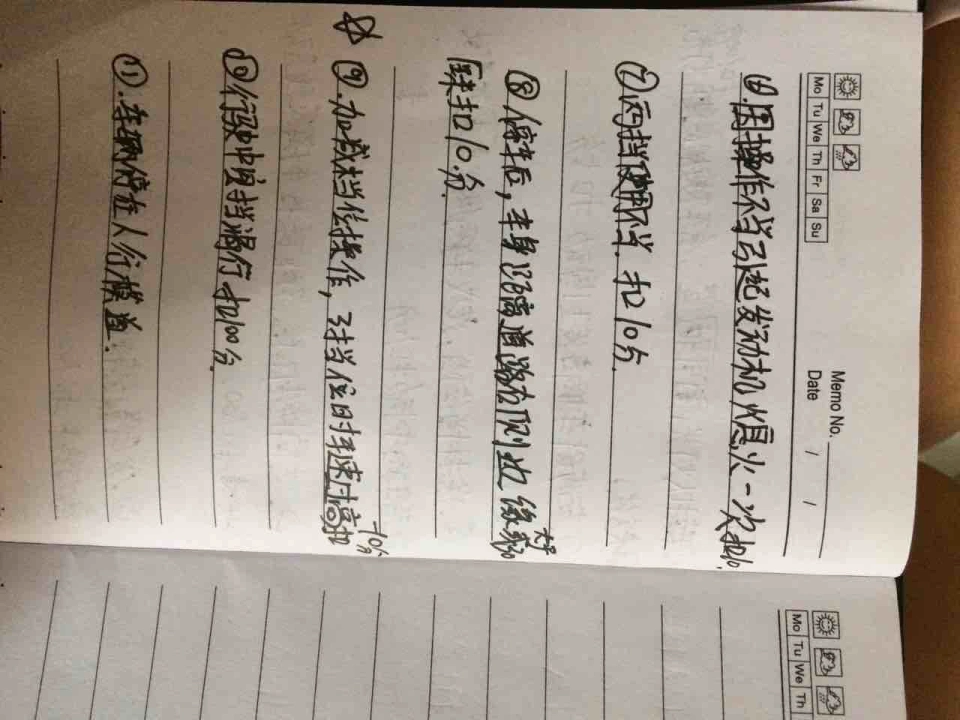 Memo No.
Mo Tu We Th Fr Sa Su
Date / /
⑥.因操作不当引起发动机熄火一次扣10.
⑦两挡使用不当.扣10分.
⑧停车后,车身距离道路右侧边缘线大于
厘米扣10.分.
⑨.加减挡位操作,3挡位时车速过高扣
-10分
⑩行驶中空挡滑行扣100分.
⑪.车辆停在人行横道.
Mo Tu We Th